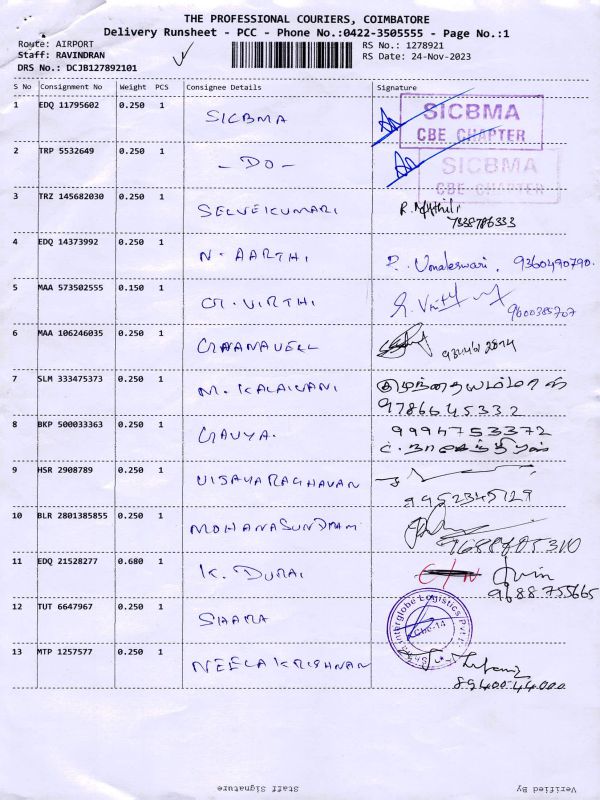 THE PROFESSIONAL COURIERS, COIMBATORE
Delivery Runsheet - PCC - Phone No.:0422-3505555 - Page No.:1
Route: AIRPORT
RS No.: 1278921
Staff: RAVINDRAN
RS Date: 24-Nov-2023
DRS No.: DCJB127892101
S No Consignment No Weight PCS Consignee Details Signature
1 EDQ 11795602 0.250 1 SICBMA SICBMA
CBE CHAPTER
2 TRP 5532649 0.250 1 - DO - SICBMA
CBE CHAPTER
3 TRZ 145682030 0.250 1 SELVEIKUMARI R. Mythili
7338786333
4 EDQ 14373992 0.250 1 N. AARTHI P. Umaleswari. 9360490790.
5 MAA 573502555 0.150 1 VIRTHI
9600385707
6 MAA 106246035 0.250 1
7 SLM 333475373 0.250 1 M. KALAIVANI
9786645332
8 BKP 500033363 0.250 1 9994753372
9 HSR 2908789 0.250 1 VIJAYARAGHAVAN
9952345729
10 BLR 2801385855 0.250 1 MOHANASUNDRAM
11 EDQ 21528277 0.680 1 K. DURAI
9688755665
12 TUT 6647967 0.250 1 Interglobe Logistics Pvt.
Cbe-14
13 MTP 1257577 0.250 1 NEELAKRISHNAN
8940044000
Staff Signature
Verified By